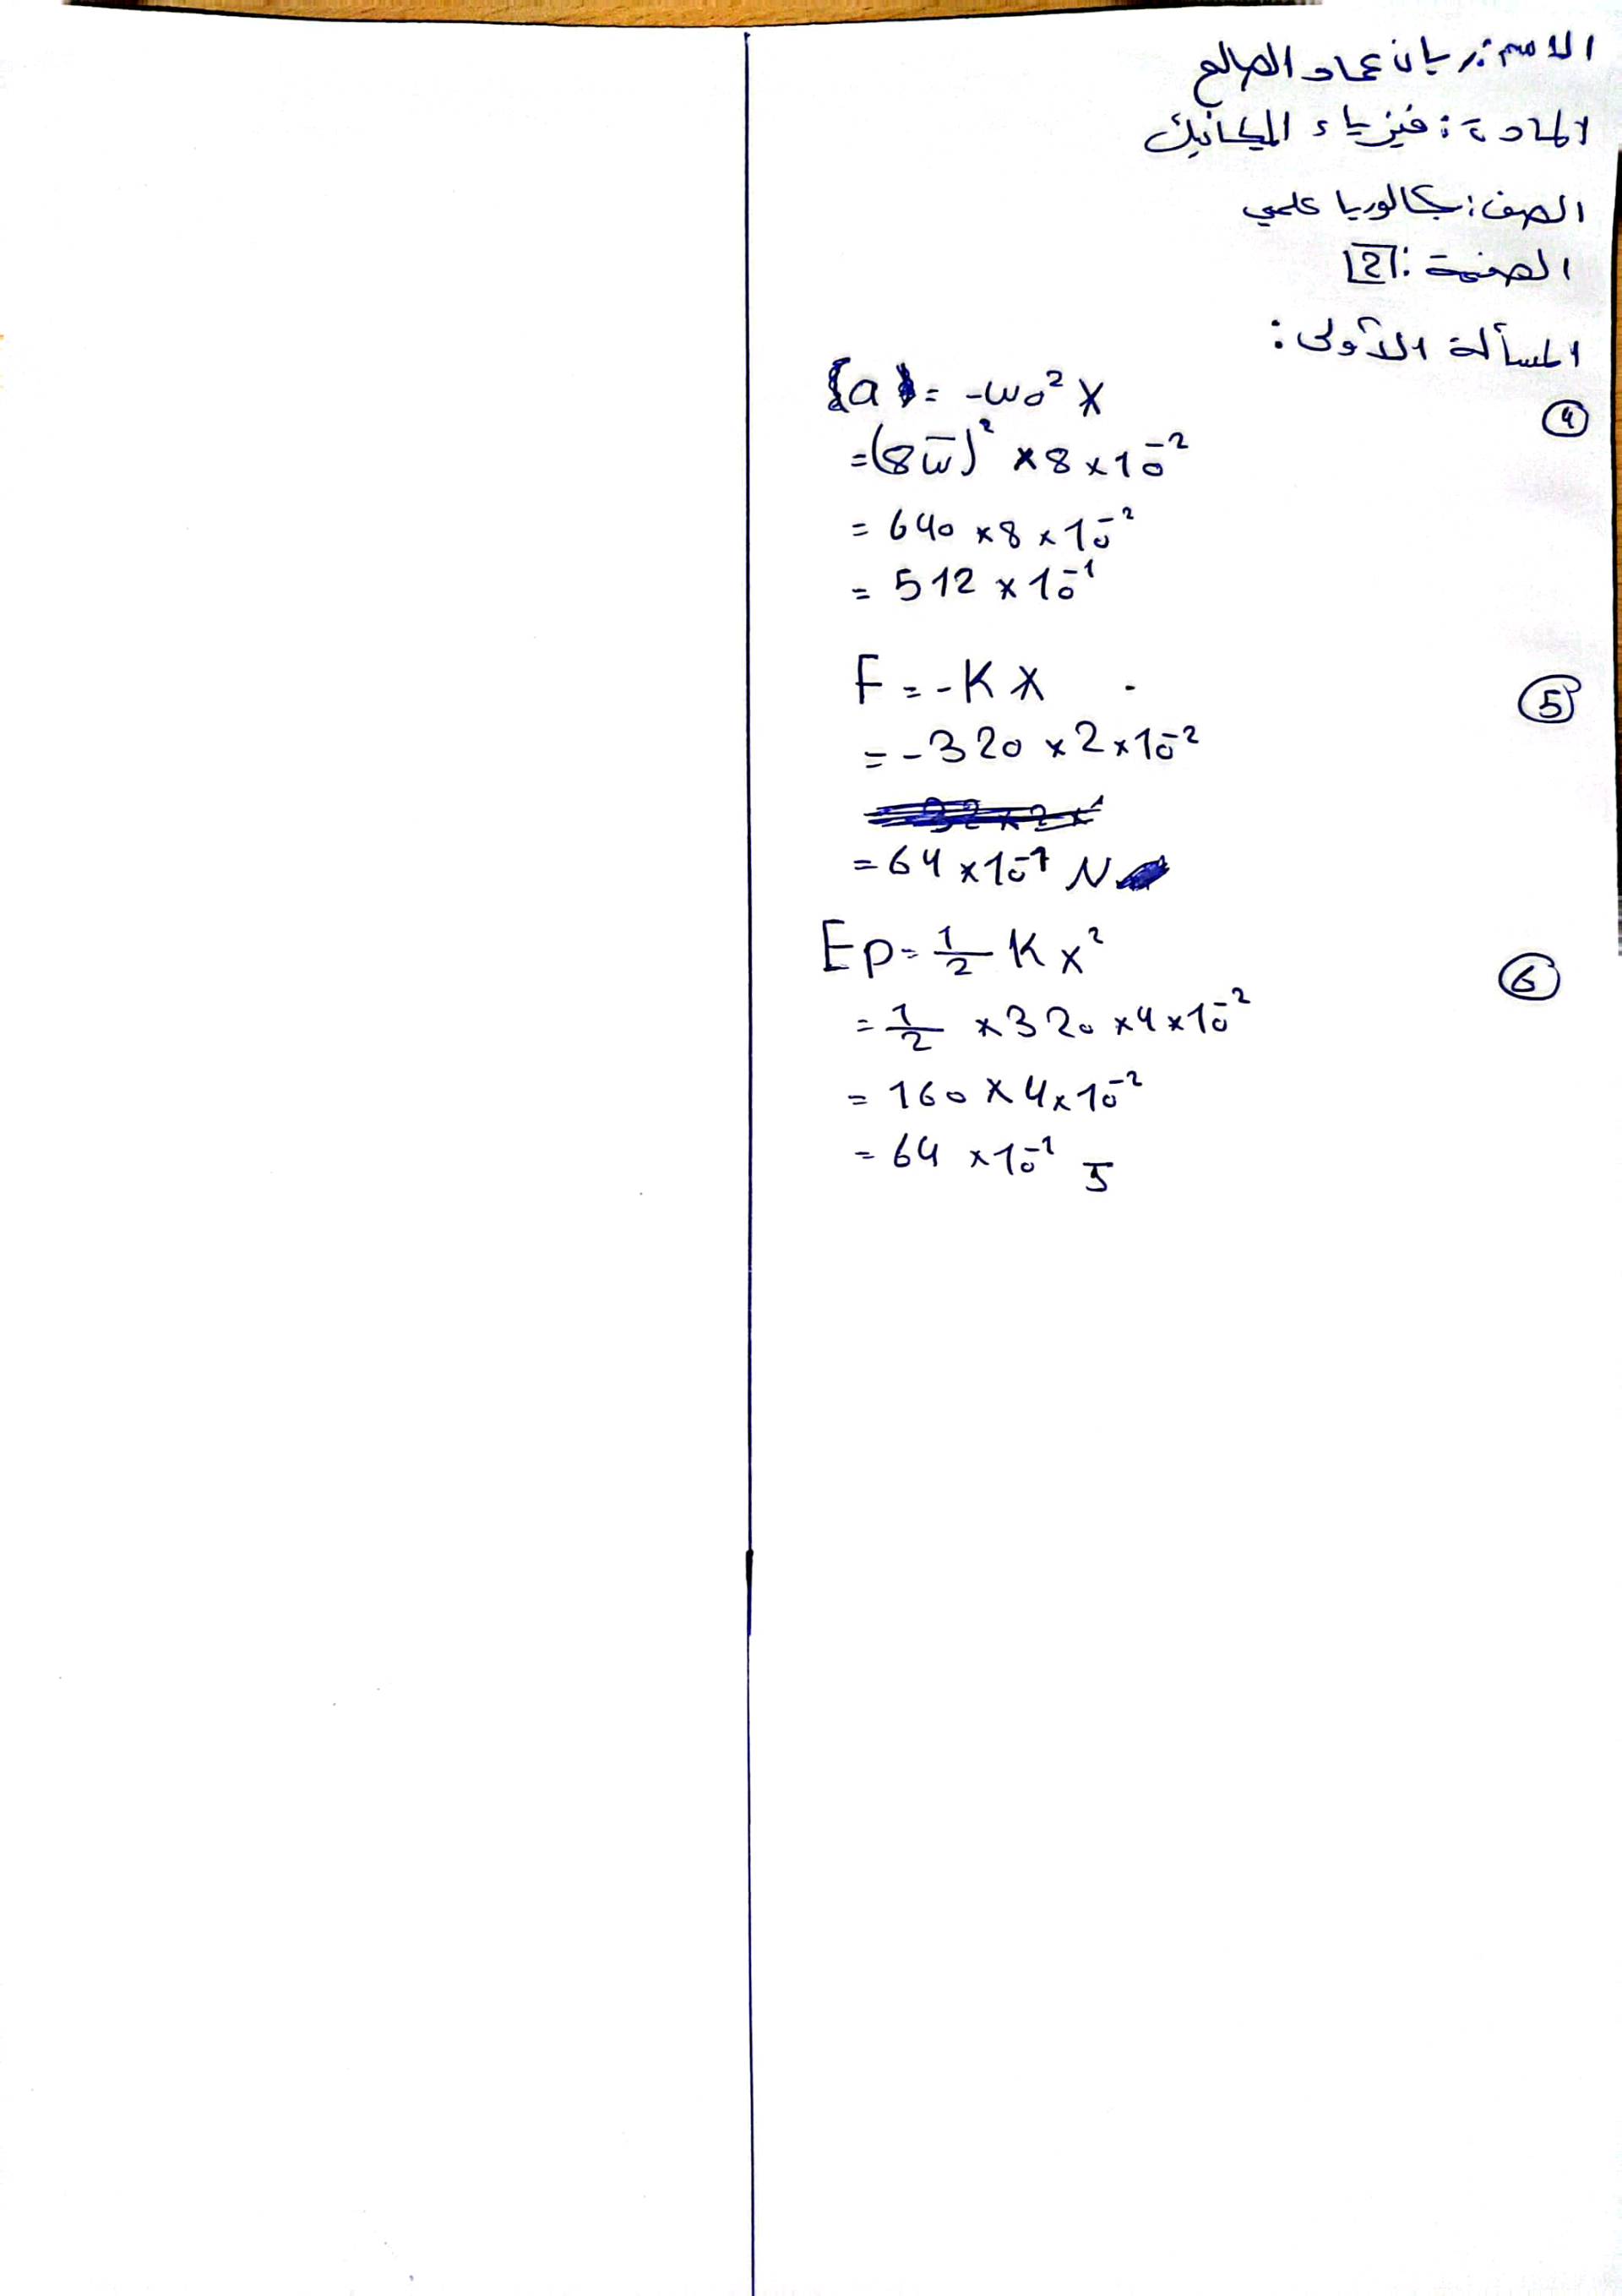 الاسم: ريان عماد الصالح
المادة: فيزياء الميكانيك
الصف: بكالوريا علمي
الصفحة: 2
المسألة الأولى:
④ a = -ω₀² X
= (8π)² × 8 × 10⁻²
= 640 × 8 × 10⁻²
= 512 × 10⁻¹
⑤ F = -K X
= -320 × 2 × 10⁻²
= 64 × 10⁻¹ N
⑥ Ep = 1/2 K X²
= 1/2 × 320 × 4 × 10⁻²
= 160 × 4 × 10⁻²
= 64 × 10⁻¹ J